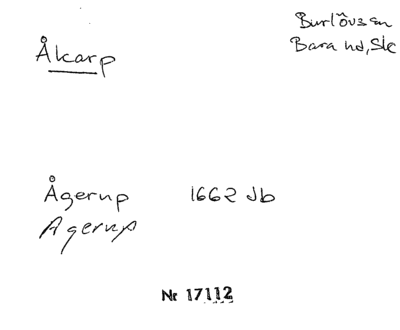 Burlövs sn
Bara hd, Sk
Åkarp
Ågerup 1662 Jb
Agerup
Nr 17112